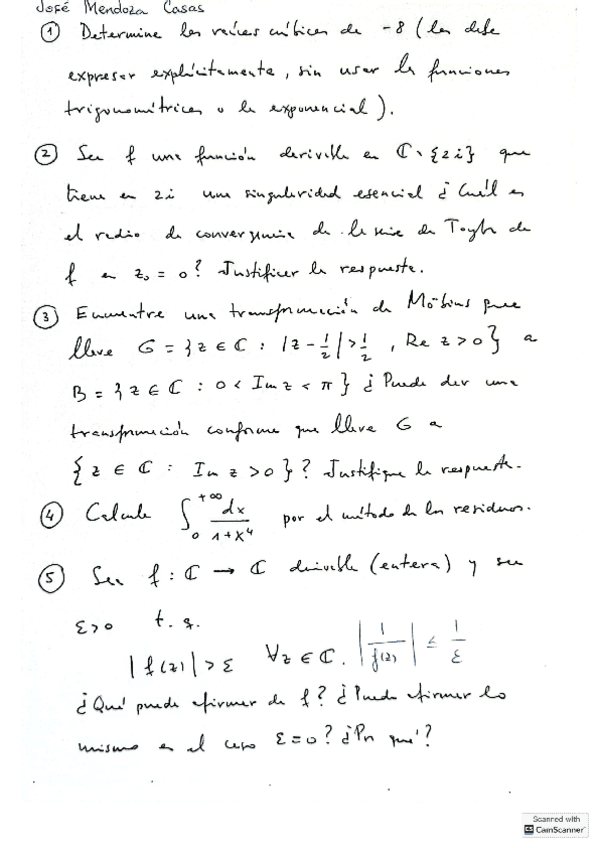 José Mendoza Casas
① Determine las raíces cúbicas de -8 (las debe
expresar explícitamente, sin usar las funciones
trigonométricas o la exponencial).
② Sea f una función derivable en ℂ∖{2i} que
tiene en 2i una singularidad esencial ¿Cuál es
el radio de convergencia de la serie de Taylor de
f en z₀ = 0? Justificar la respuesta.
③ Encuentre una transformación de Möbius que
lleve G = {z ∈ ℂ : |z - 1/2| > 1/2, Re z > 0} a
B = {z ∈ ℂ : 0 < Im z < π} ¿Puede dar una
transformación conforme que lleve G a
{z ∈ ℂ : Im z > 0}? Justifique la respuesta.
④ Calcule ∫₀^{+∞} dx/(1+x⁴) por el método de los residuos.
⑤ Sea f : ℂ → ℂ derivable (entera) y sea
ε>0 t.q.
|f(z)| > ε ∀z ∈ ℂ. |1/f(z)| ≤ 1/ε
¿Qué puede afirmar de f? ¿Puede afirmar lo
mismo en el caso ε=0? ¿Por qué?
Scanned with
CamScanner